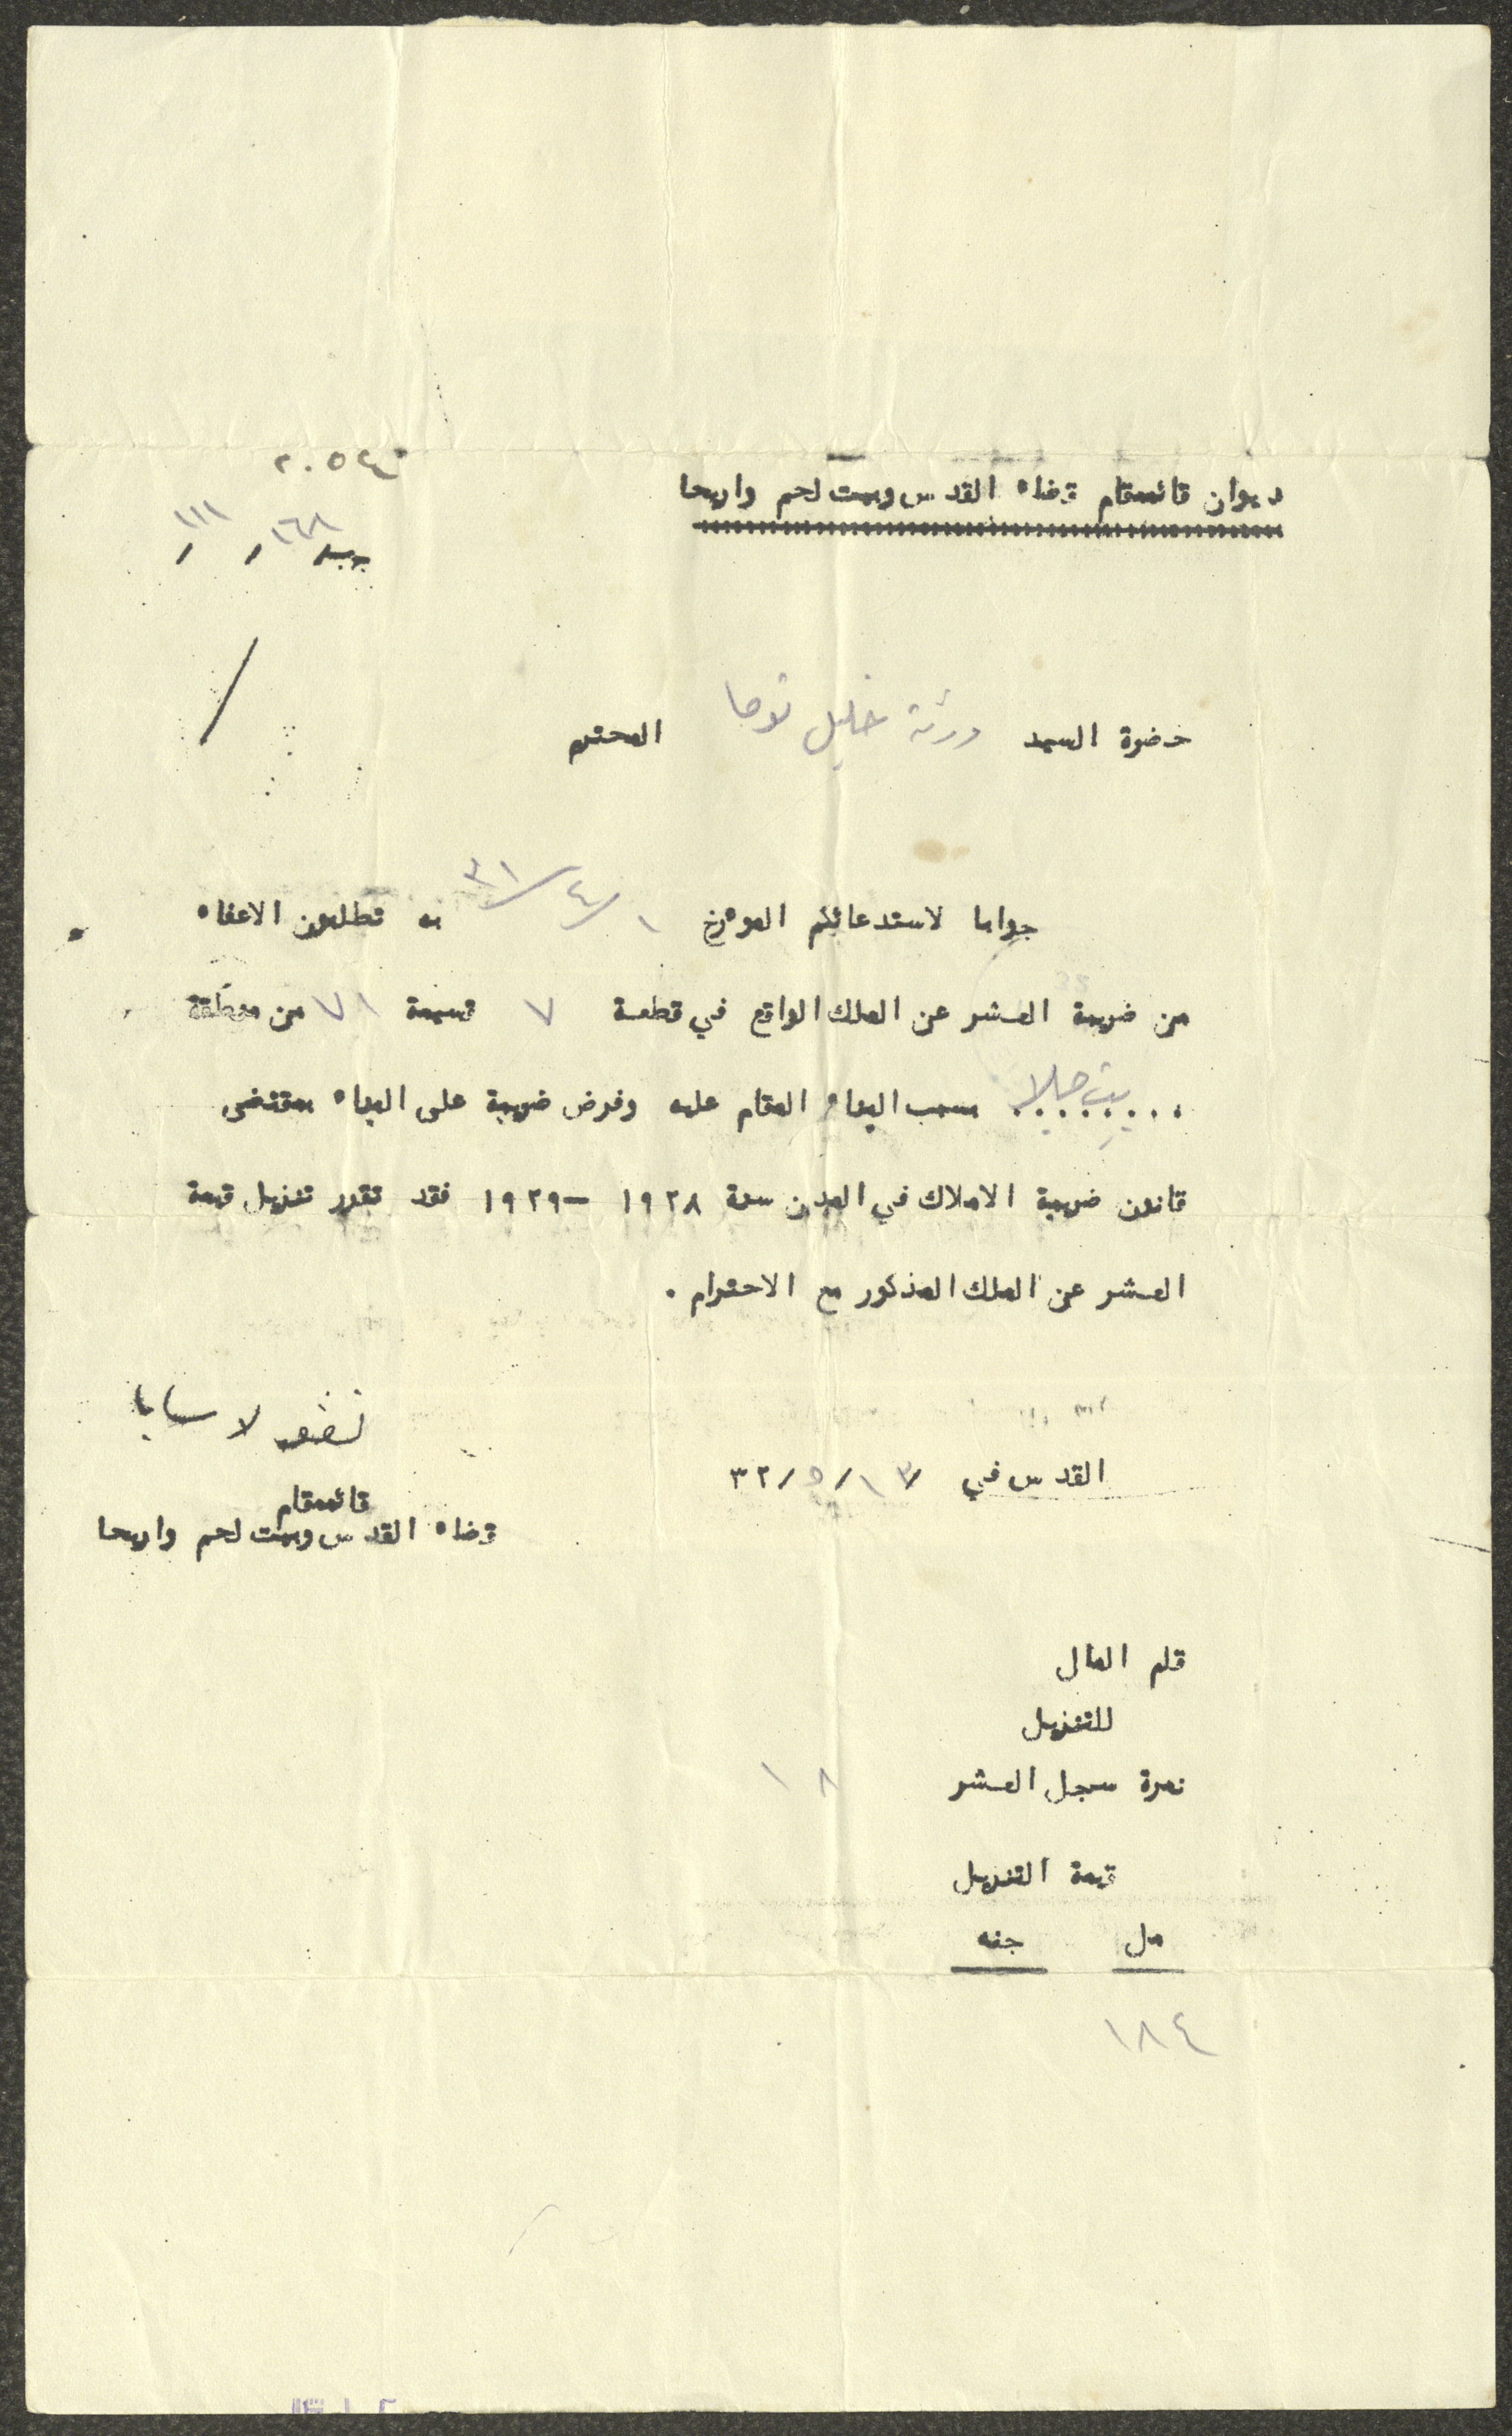 ٢٠٥٤
ديوان قائمقام قضاء القدس وبيت لحم واريحا
١١١ / ١٦٨ /
حضرة السيد ورثة خليل توما المحترم
جوابا لاستدعائكم المؤرخ ١/٤/٣١ به تطلبون الاعفاء
من ضريبة العشر عن الملك الواقع في قطعة ٧ قسيمة ٧٨ من منطقة
بيت جالا بسبب البناء المقام عليه وفرض ضريبة على البناء بمقتضى
قانون ضريبة الاملاك في المدن سنة ١٩٢٨ -١٩٢٩ فقد تقرر تنزيل قيمة
العشر عن الملك المذكور مع الاحترام .
القدس في ١٣/٥/٣٢
قائمقام
قضاء القدس وبيت لحم واريحا
قلم المال
للتنزيل
نمرة سجل العشر ١٨
قيمة التنزيل
مل جنه
١٨٤